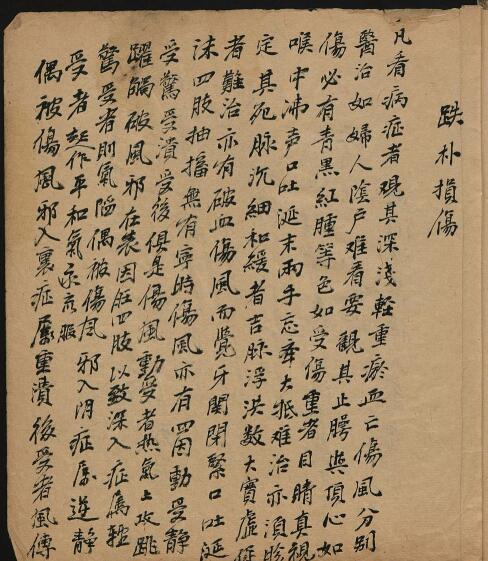 跌朴損傷
凡看病症者覌其深淺輕重瘀血亡傷風分别
醫治如婦人陰户难看要覌其上腭與頂心如
傷必有青黑紅腫等色如受傷重者目睛真視
喉中沸声口吐涎末兩手忘牽大抵难治亦湏
定其死脉沉細和緩者吉脉浮洪数大實虚
者難治亦有破血傷風而覺牙関閉緊口吐涎
沫四肢抽搐無有寧時傷風亦有四因動受静
受驚受潰受後俱是傷風動受者热氣上攻跳
躍觸破風邪在表因在四肢以致深入症属
驚受者則氣陷偶被傷风邪入阴症属逆静
受者起作平和氣
偶被傷風邪入裏症属重潰後受者風傳